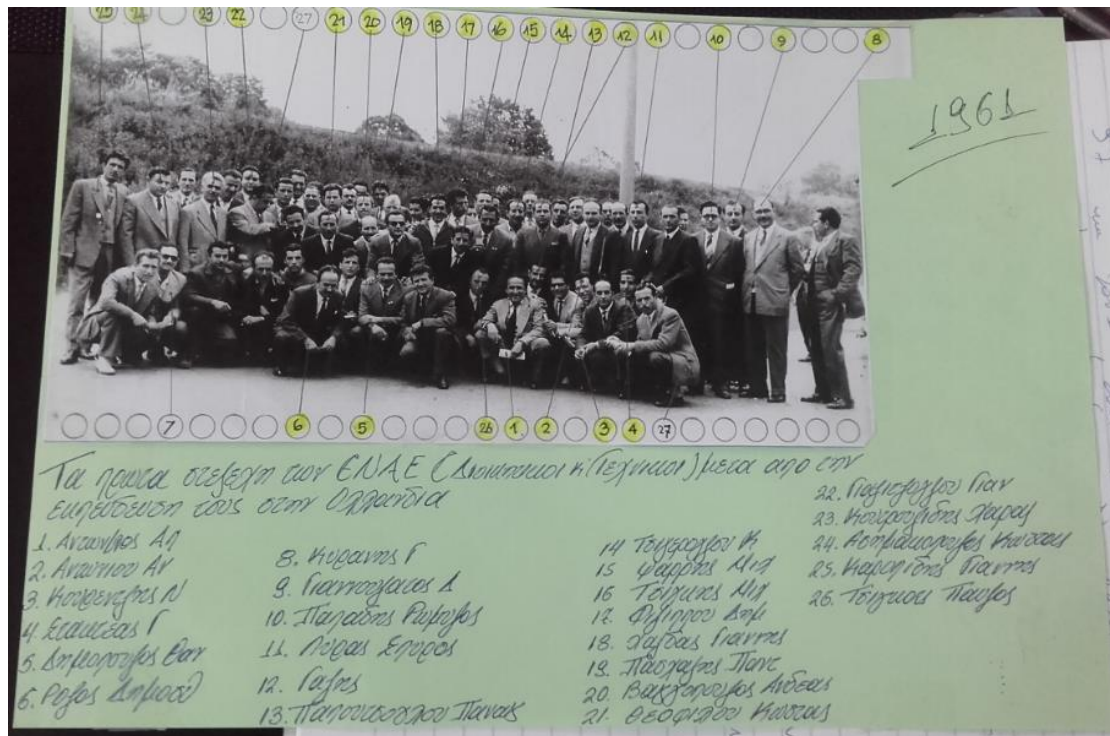 25 24 23 22 27 21 20 19 18 17 16 15 14 13 12 11 10 9 8
1961
7 6 5 26 1 2 3 4 27
Τα πρωτα στελεχη των ΕΝΑΕ (Διοικητικοι κ Τεχνικοι) μετα απο την
εκπαιδευση τους στην Ολλανδια
1. Αντωνιος Αη
2. Αντωνιου Αν
3. Ν
4. Γ
5. Δημοπουλος Θαν
6. Ρολος Δημοσ
8. Κυρανης Γ
9. Γιαννουλατος Δ
10. Παπαδης Ρωμυλος
11. Λυρας Σπυρος
12. Γαλης
13. Παπουτσογλου Παναγ
14 Κ
15 Ψαρρης Μιχ
16 Τσιλικης Μιχ
17. Φιλιππου Δημ
18. Χαλδας Γιαννης
19. Πασχαλης Παντ
20. Ανδρεας
21. Θεοφιλου Κωστας
22. Γιαν
23. Χαραλ
24. Ασημακοπουλος Κωστας
25. Καραλιδης Γιαννης
26. Παυλος